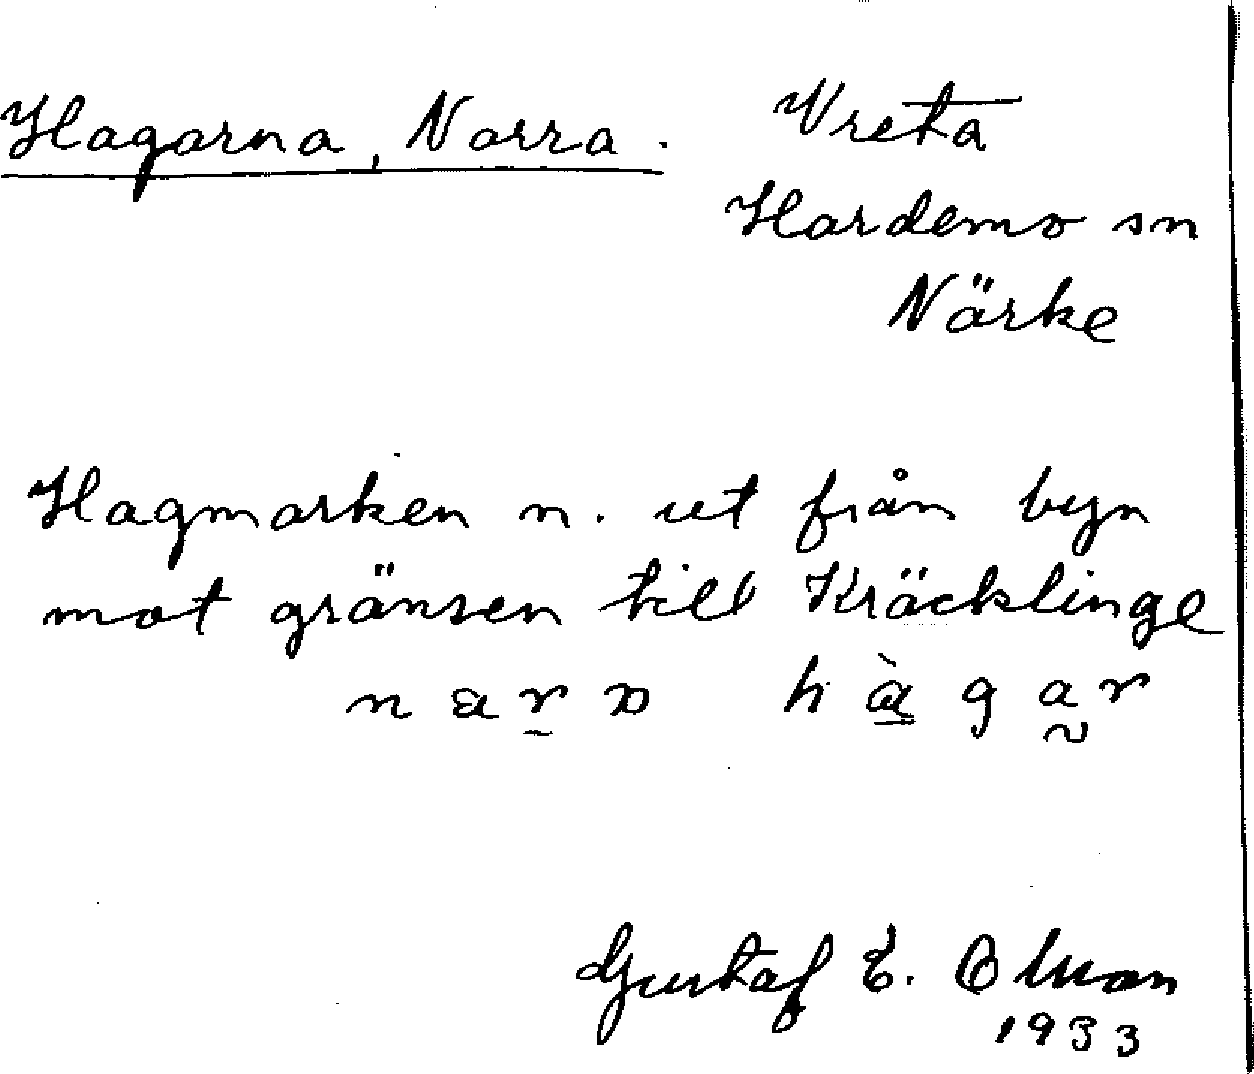 Hagarna, Norra.
Vreta
Hardemo sn
Närke
Hagmarken n. ut från byn
mot gränsen till Kräcklinge
hàgar
Gustaf E. Olsson
1933